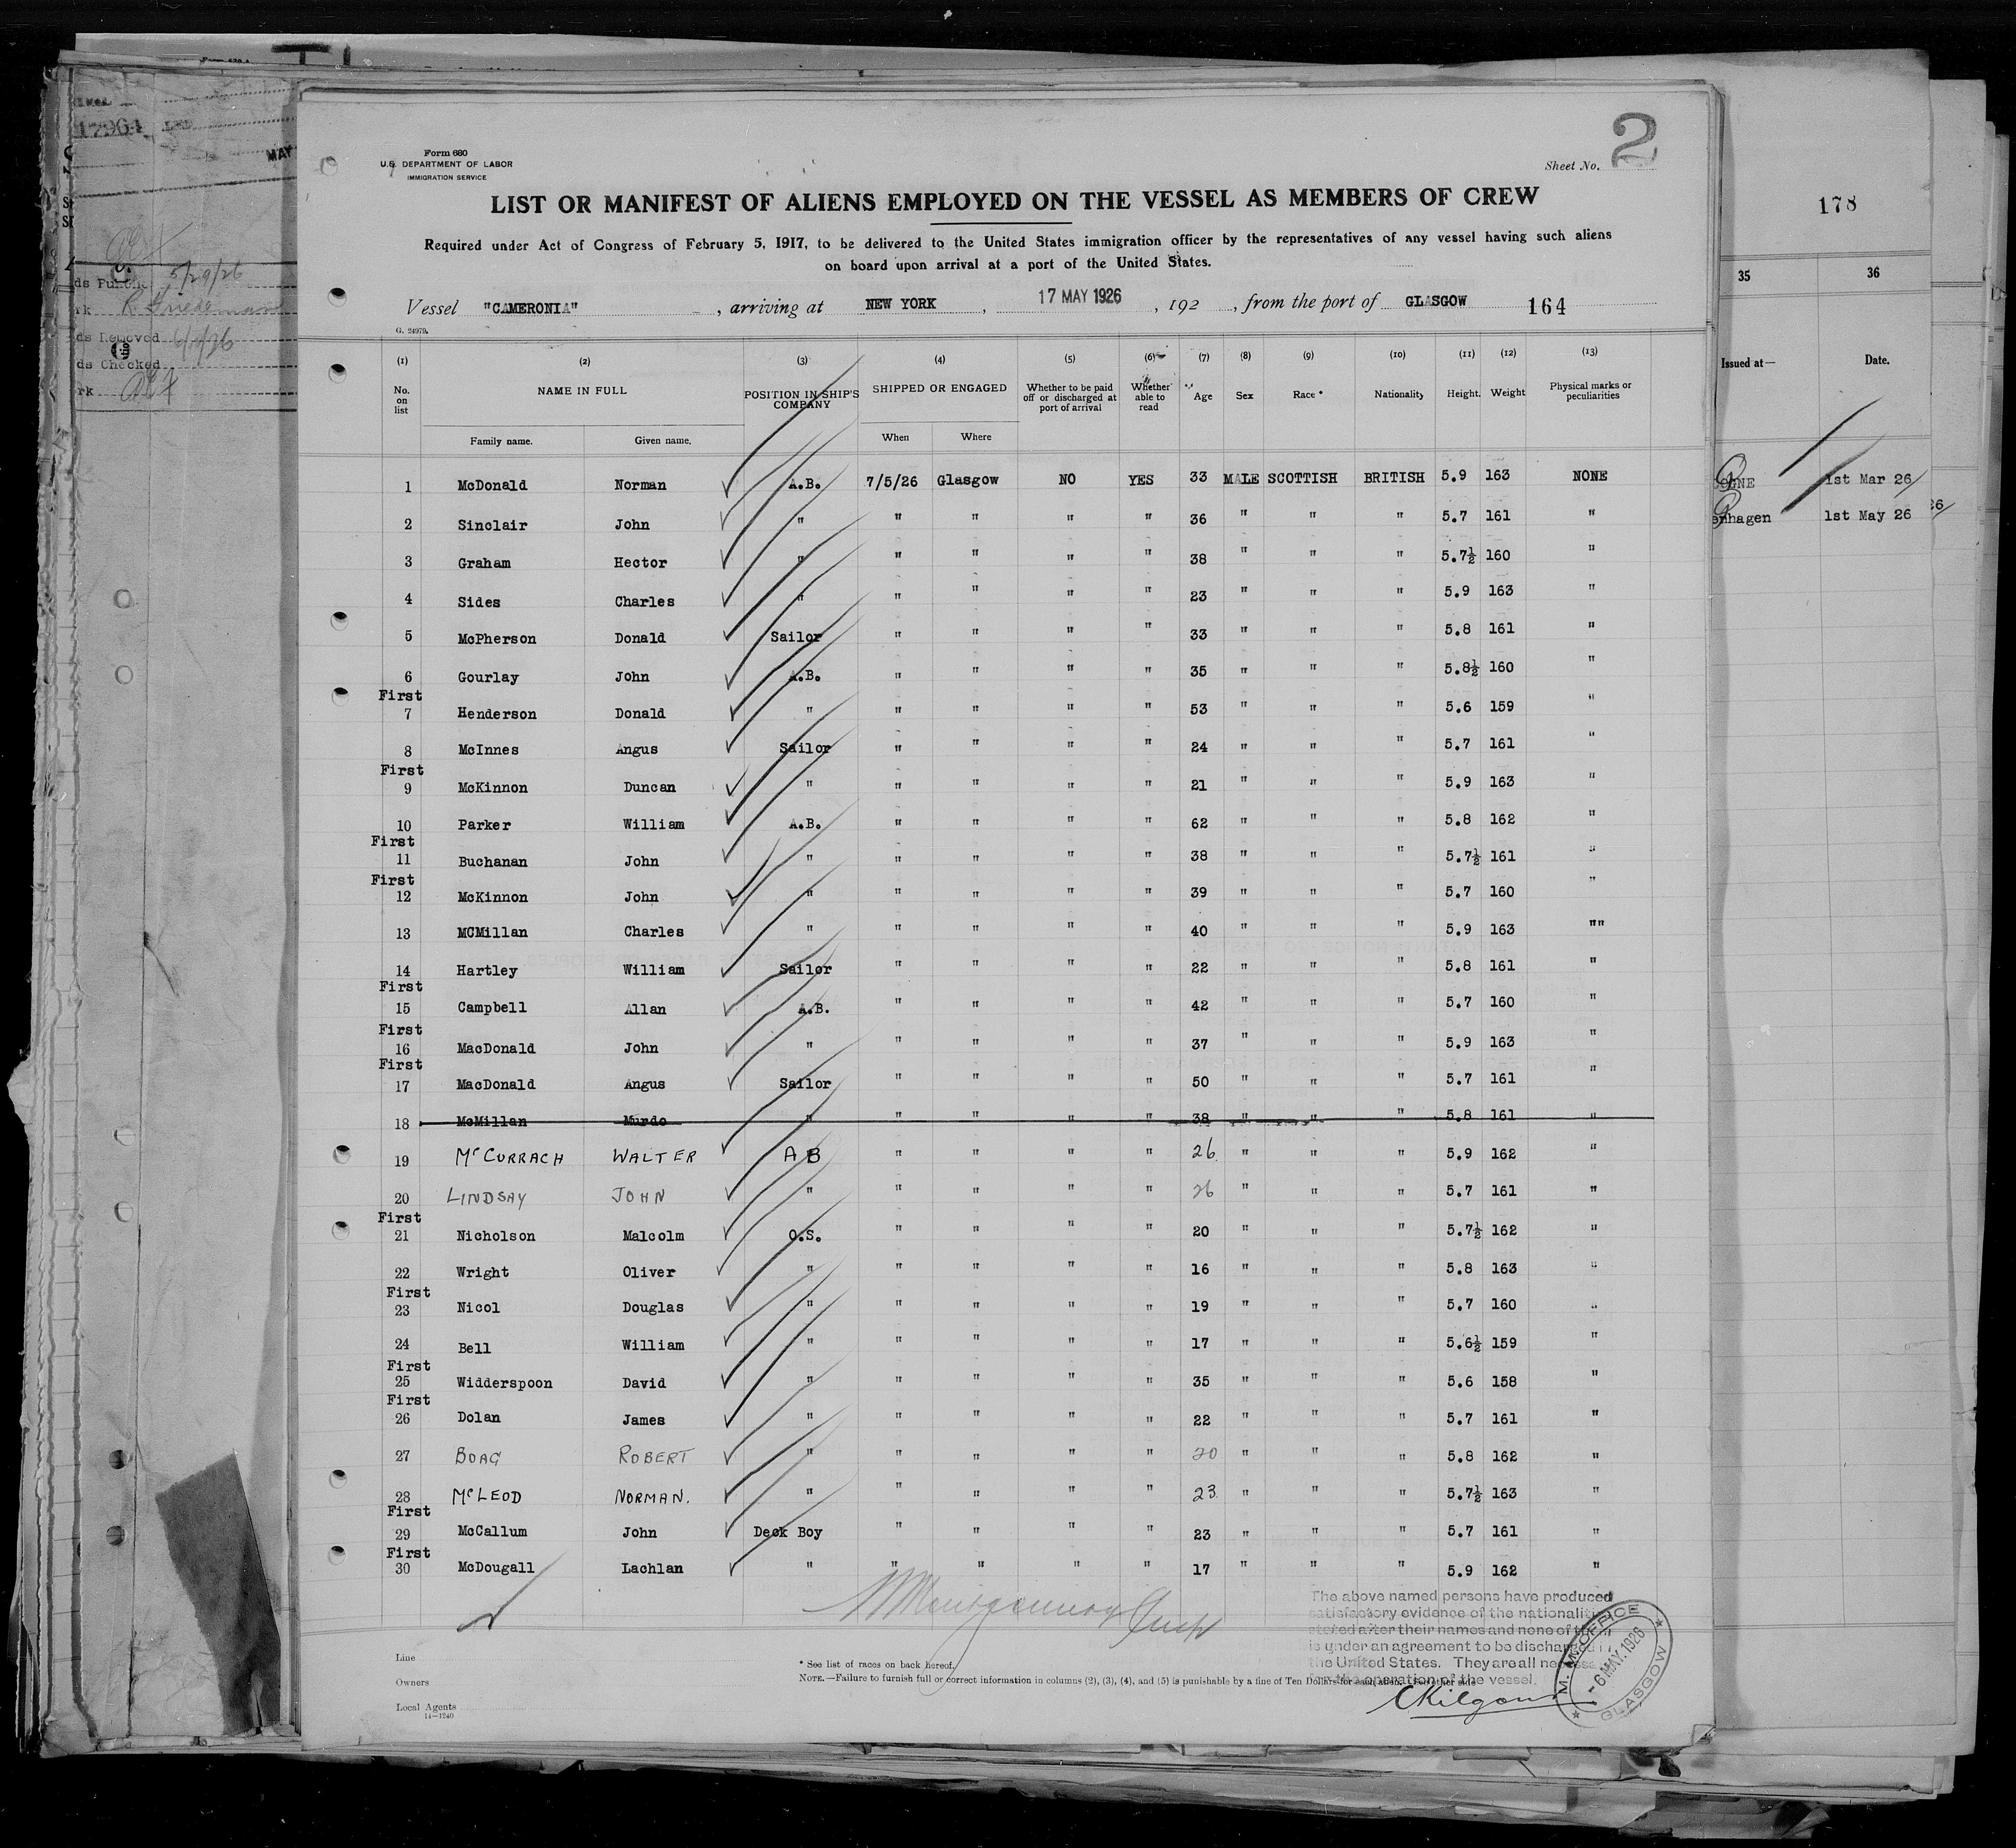 17964
MAY
5/29/26
ds Removed
ds Checked
rk
178
35 36
Issued at— Date.
1st Mar 26
enhagen 1st May 26
Form 680
U.S. DEPARTMENT OF LABOR
IMMIGRATION SERVICE
Sheet No. 2
LIST OR MANIFEST OF ALIENS EMPLOYED ON THE VESSEL AS MEMBERS OF CREW
Required under Act of Congress of February 5, 1917, to be delivered to the United States immigration officer by the representatives of any vessel having such aliens
on board upon arrival at a port of the United States.
Vessel "CAMERONIA", arriving at NEW YORK, 17 MAY 1926, 192 , from the port of GLASGOW 164
G. 24979.
(1) (2) (3) (4) (5) (6) (7) (8) (9) (10) (11) (12) (13)
No. on list NAME IN FULL POSITION IN SHIP'S COMPANY SHIPPED OR ENGAGED Whether to be paid off or discharged at port of arrival Whether able to read Age Sex Race * Nationality Height. Weight Physical marks or peculiarities
Family name. Given name. When Where
1 McDonald Norman A.B. 7/5/26 Glasgow NO YES 33 MALE SCOTTISH BRITISH 5.9 163 NONE
2 Sinclair John " " " " " 36 " " " 5.7 161 "
3 Graham Hector " " " " " 38 " " " 5.7½ 160 "
4 Sides Charles " " " " " 23 " " " 5.9 163 "
5 McPherson Donald Sailor " " " " 33 " " " 5.8 161 "
6 Gourlay John A.B. " " " " 35 " " " 5.8½ 160 "
First
7 Henderson Donald " " " " " 53 " " " 5.6 159 "
8 McInnes Angus Sailor " " " " 24 " " " 5.7 161 "
First
9 McKinnon Duncan " " " " " 21 " " " 5.9 163 "
10 Parker William A.B. " " " " 62 " " " 5.8 162 "
First
11 Buchanan John " " " " " 38 " " " 5.7½ 161 "
First
12 McKinnon John " " " " " 39 " " " 5.7 160 "
13 MCMillan Charles " " " " " 40 " " " 5.9 163 ""
14 Hartley William Sailor " " " " 22 " " " 5.8 161 "
First
15 Campbell Allan A.B. " " " " 42 " " " 5.7 160 "
First
16 MacDonald John " " " " " 37 " " " 5.9 163 "
First
17 MacDonald Angus Sailor " " " " 50 " " " 5.7 161 "
18 McMillan Murdo " " " " " 38 " " " 5.8 161 "
19 McCURRACH WALTER AB " " " " 26 " " " 5.9 162 "
20 LINDSAY JOHN " " " " " 26 " " " 5.7 161 "
First
21 Nicholson Malcolm O.S. " " " " 20 " " " 5.7½ 162 "
22 Wright Oliver " " " " " 16 " " " 5.8 163 "
First
23 Nicol Douglas " " " " " 19 " " " 5.7 160 "
24 Bell William " " " " " 17 " " " 5.6½ 159 "
First
25 Widderspoon David " " " " " 35 " " " 5.6 158 "
First
26 Dolan James " " " " " 22 " " " 5.7 161 "
27 BOAG ROBERT " " " " " 20 " " " 5.8 162 "
28 McLEOD NORMAN. " " " " " 23 " " " 5.7½ 163 "
First
29 McCallum John Deck Boy " " " " 23 " " " 5.7 161 "
First
30 McDougall Lachlan " " " " " 17 " " " 5.9 162 "
The above named persons have produced
satisfactory evidence of the nationality
stated after their names and none of them
is under an agreement to be discharged
the United States. They are all
for the operation of the vessel.
CKilgour
M.M. OFFICE
-6 MAY.1926
GLASGOW
Line
Owners
Local Agents
14—1240
* See list of races on back hereof.
NOTE.—Failure to furnish full or correct information in columns (2), (3), (4), and (5) is punishable by a fine of Ten Dollars for each alien. other side